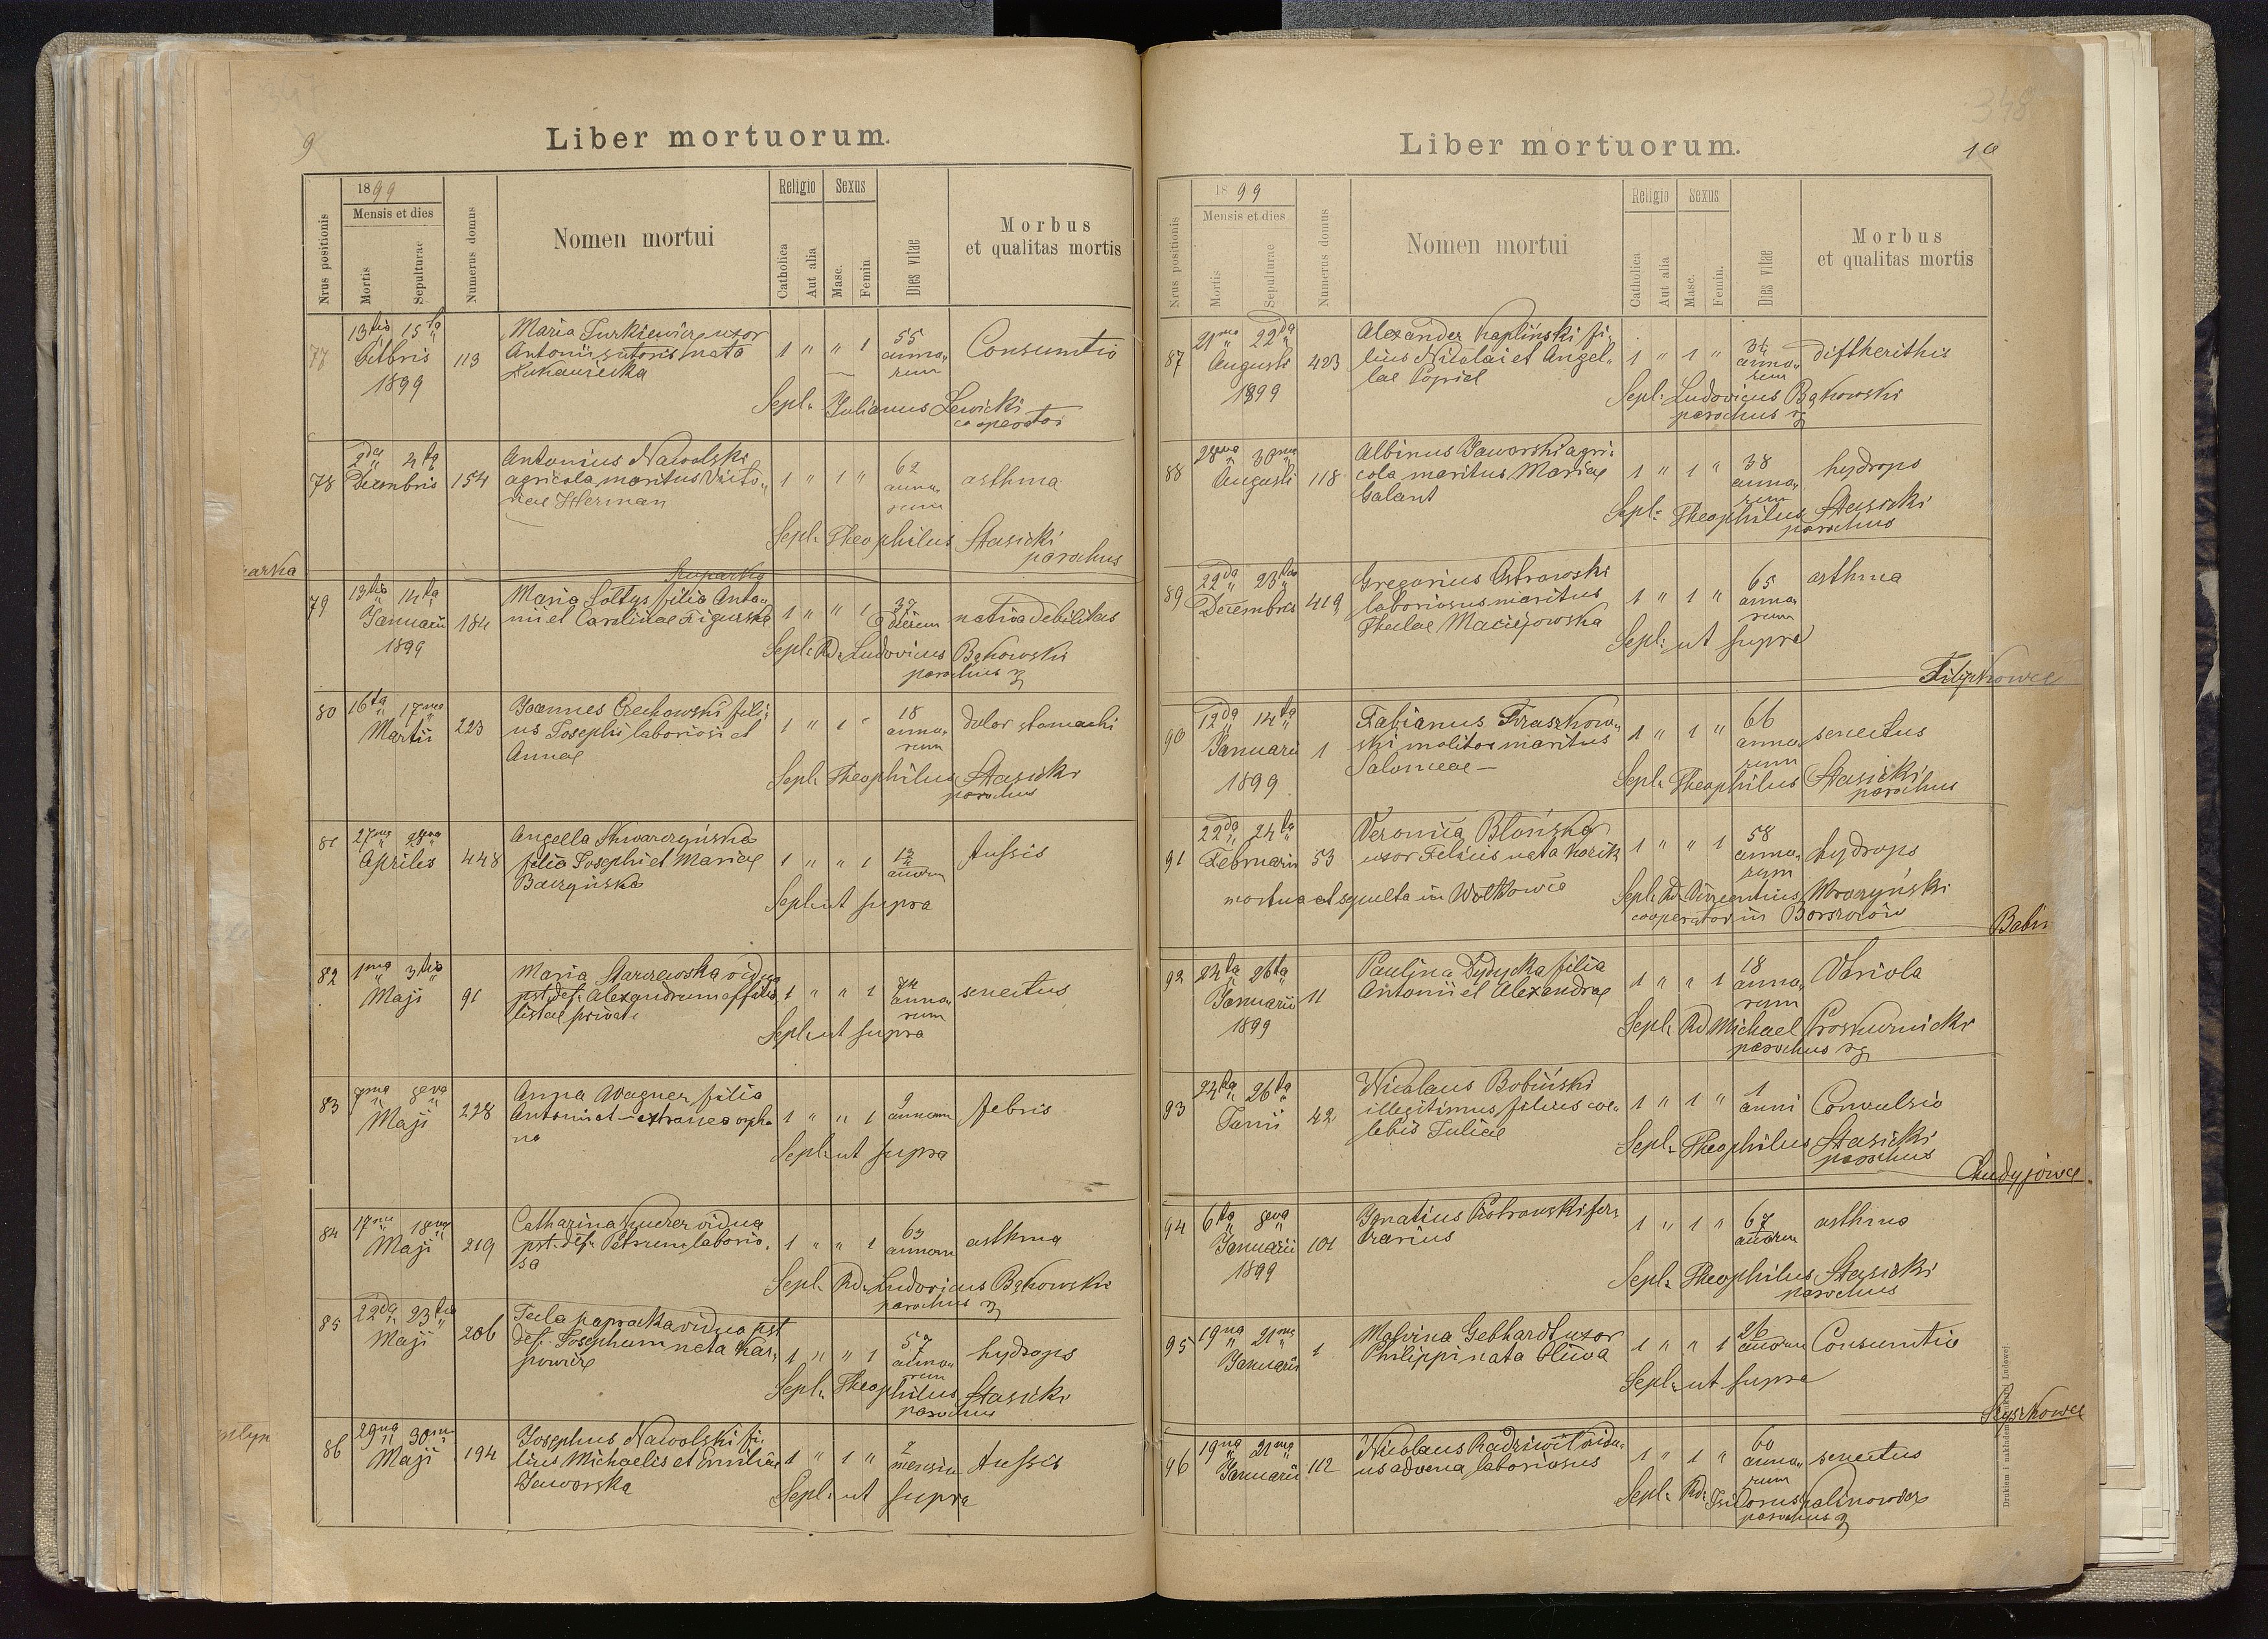 9
Liber mortuorum.
Nrus positionis
1899
Mensis et dies
Mortis
Sepulturae
Numerus domus
Nomen mortui
Religio
Catholica
Aut alia
Sexus
Masc.
Femin
Dies vitae
Morbus
et qualitas mortis
77 13tia 15ta 8bris 1899 113
Maria Turkiewicz uxor
Antonii sutoris nata
1 " " 1 55 annorum Consumtio
Sepl: Julianus Lewicki
cooperator
78 2da 4ta Decembris 154
Antonius Nawolski
agricola maritus Victo„
riae Herman
1 " 1 " 62 annorum asthma
Sepl: Theophilus Stasicki
parochus
arka
79 13tia 14ta Januarii 1899 184
Maria Soltys filia Anto„
nii et Carolinae Figurska
1 " " 1 37 dierum nativa debilitas
Sepl: Rd. Ludovicus Bąkowski
parochus
80 16ta 17ma Martii 223
Joannes Orechowski fili„
us Josephi laboriosi et
Annae
1 " 1 " 18 annorum dolor stomachi
Sepl: Theophilus Stasicki
parochus
81 27ma 28va Aprilis 448
Angella Skwarczyńska
filia Josephi et Mariae
Baczyńska
1 " " 1 annorum tussis
Sepl: ut supra
82 1ma 3tia Maji 91
Maria Starzewska vidua
pst. def. Alexandrum
privati
1 " " 1 74 annorum senectus
Sepl: ut supra
83 7ma 8va Maji 228
Anna Wagner filia
Antonii et – extranea orpha
na
1 " " 1 2 annorum febris
Sepl: ut supra
84 17ma 18va Maji 219
Catharina Kuczer vidua
pst. def. Petrum laborio„
sa
1 " " 1 63 annorum asthma
Sepl: Rd. Ludovicus Bąkowski
parochus
85 22da 23tia Maji 206
Tecla Paprocka vidua pst
def. Josephum nata Kar„
powicz
1 " " 1 57 annorum hydrops
Sepl: Theophilus Stasicki
parochus
mlyn
86 29na 30ma Maji 194
Josephus Nawolski fi„
lius Michaelis et Emiliae
Jaworska
1 " 1 " 2 mensium tussis
Sepl: ut supra
348
10
Liber mortuorum.
Nrus positionis
1899
Mensis et dies
Mortis
Sepulturae
Numerus domus
Nomen mortui
Religio
Catholica
Aut alia
Sexus
Masc.
Femin.
Dies vitae
Morbus
et qualitas mortis
87 21ma 22da Augusti 1899 423
Alexander Kaplinski fi„
lius Nicolai et Angel„
lae Popiel
1 " 1 " annorum diftherithis
Sepl: Ludovicus Bąkowski
parochus
88 28va 30ma Augusti 118
Albinus Jaworski agri„
cola maritus Mariae
Galant
1 " 1 " 38 annorum hydrops
Sepl: Theophilus Stasicki
parochus
89 22da 23tia Decembris 419
Gregorius Ostrowski
laboriosus maritus
Theclae Maciejowska
1 " 1 " 65 annorum asthma
Sepl: ut supra
Filipkowce
90 12da 14ta Januarii 1899 1
Fabianus Fraszkow„
ski molitor maritus
Salomeae –
1 " 1 " 66 annorum senectus
Sepl: Theophilus Stasicki
parochus
91 22da 24ta Februarii 53
Veronica Błońska
uxor Felicis nata Kozik
1 " " 1 58 annorum hydrops
mortua et sepulta in Wołkowce
Sepl: Rd. Vincentius Mroczyński
cooperator in Borszczów
Babin
92 24ta 26ta Januarii 1899 11
Paulina Dydycka filia
Antonii et Alexandrae
1 " " 1 18 annorum Variola
Sepl: Rd Michael Proskurnicki
parochus
93 24ta 26ta Junii 42
Nicolaus Bobiński
illegitimus filius coe„
lebis Juliae
1 " 1 " 1 anni Convulsio
Sepl: Theophilus Stasicki
parochus
Chudyjowce
94 6ta 8va Januarii 1899 101
Ignatius Piotrowski fer„
rarius
1 " 1 " 67 annorum asthma
Sepl: Theophilus Stasicki
parochus
95 19na 21ma Januarii 1
Malvina Gebhardt uxor
Philippi nata Oliwa
1 " " 1 26 annorum Consumtio
Sepl: ut supra
Szyszkowce
96 19na 21ma Januarii 112
Nicolaus Radziwił vidu„
us advena laboriosus
1 " 1 " 60 annorum senectus
Sepl: Rd. Isidorus Kalinowicz
parochus
Drukiem i nakładem Drukarni Ludowej.